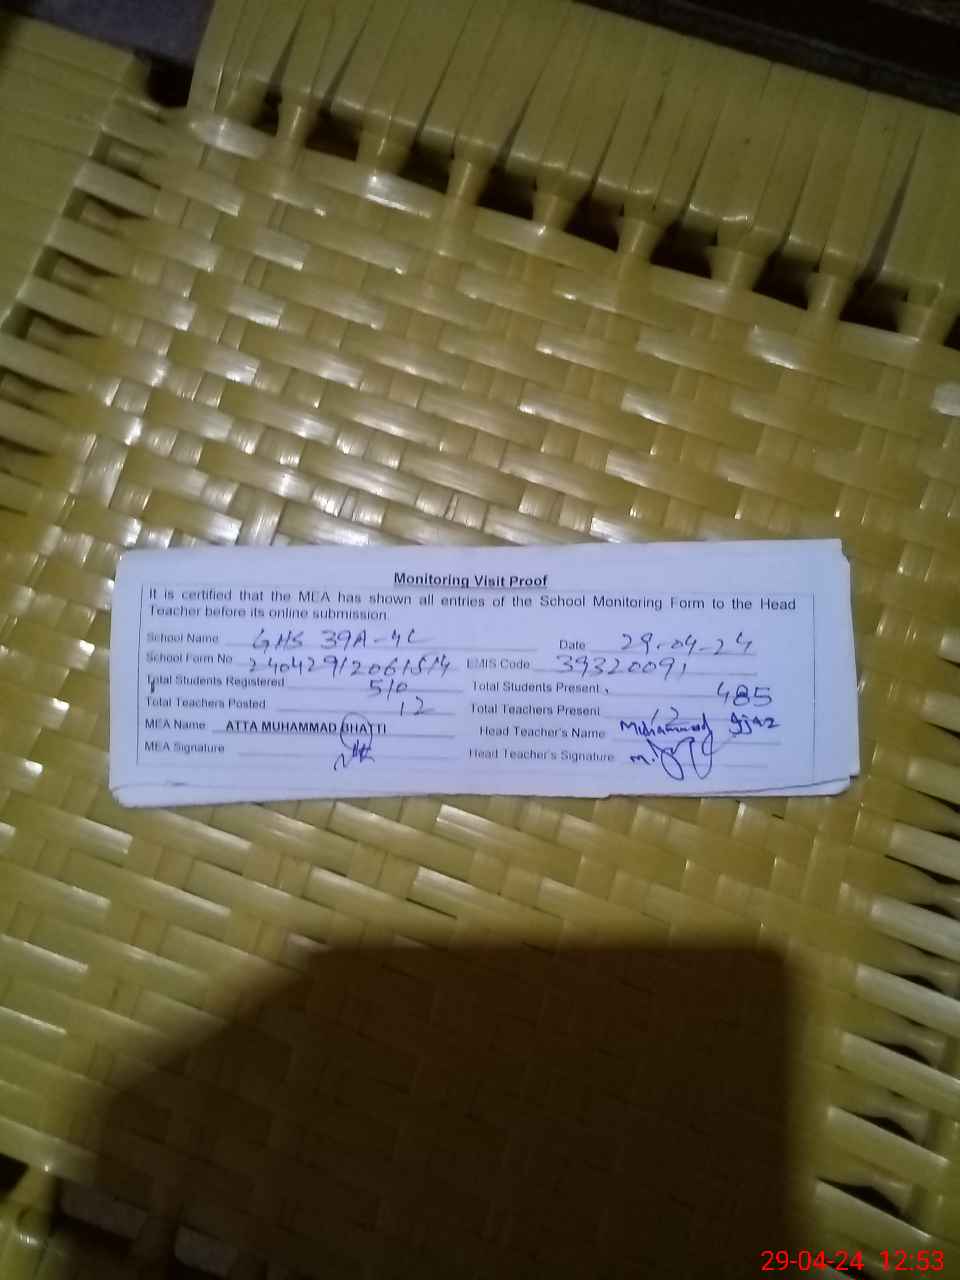 Monitoring Visit Proof
It is certified that the MEA has shown all entries of the School Monitoring Form to the Head
Teacher before its online submission
School Name GHS 39A-4L Date 29-04-24
School Form No EMIS Code 39320091
Total Students Registered 510 Total Students Present 485
Total Teachers Posted 12 Total Teachers Present 12
MEA Name ATTA MUHAMMAD BHATTI Head Teacher's Name Muhammad Ijaz
MEA Signature Head Teacher's Signature M.
29-04-24 12:53